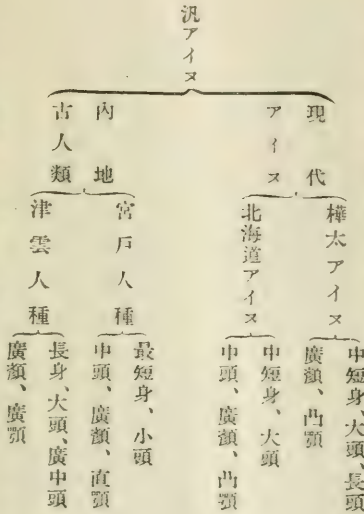 汎アイヌ
現代
アイヌ
樺太アイヌ
中短身、大頭、長頭
廣顏、凸顎
北海道アイヌ
中短身、大頭
中頭、廣顏、凸顎
內地
古人類
宮戶人種
最短身、小頭
中頭、廣顏、直顎
津雲人種
長身、大頭、廣中頭
廣顏、廣顎